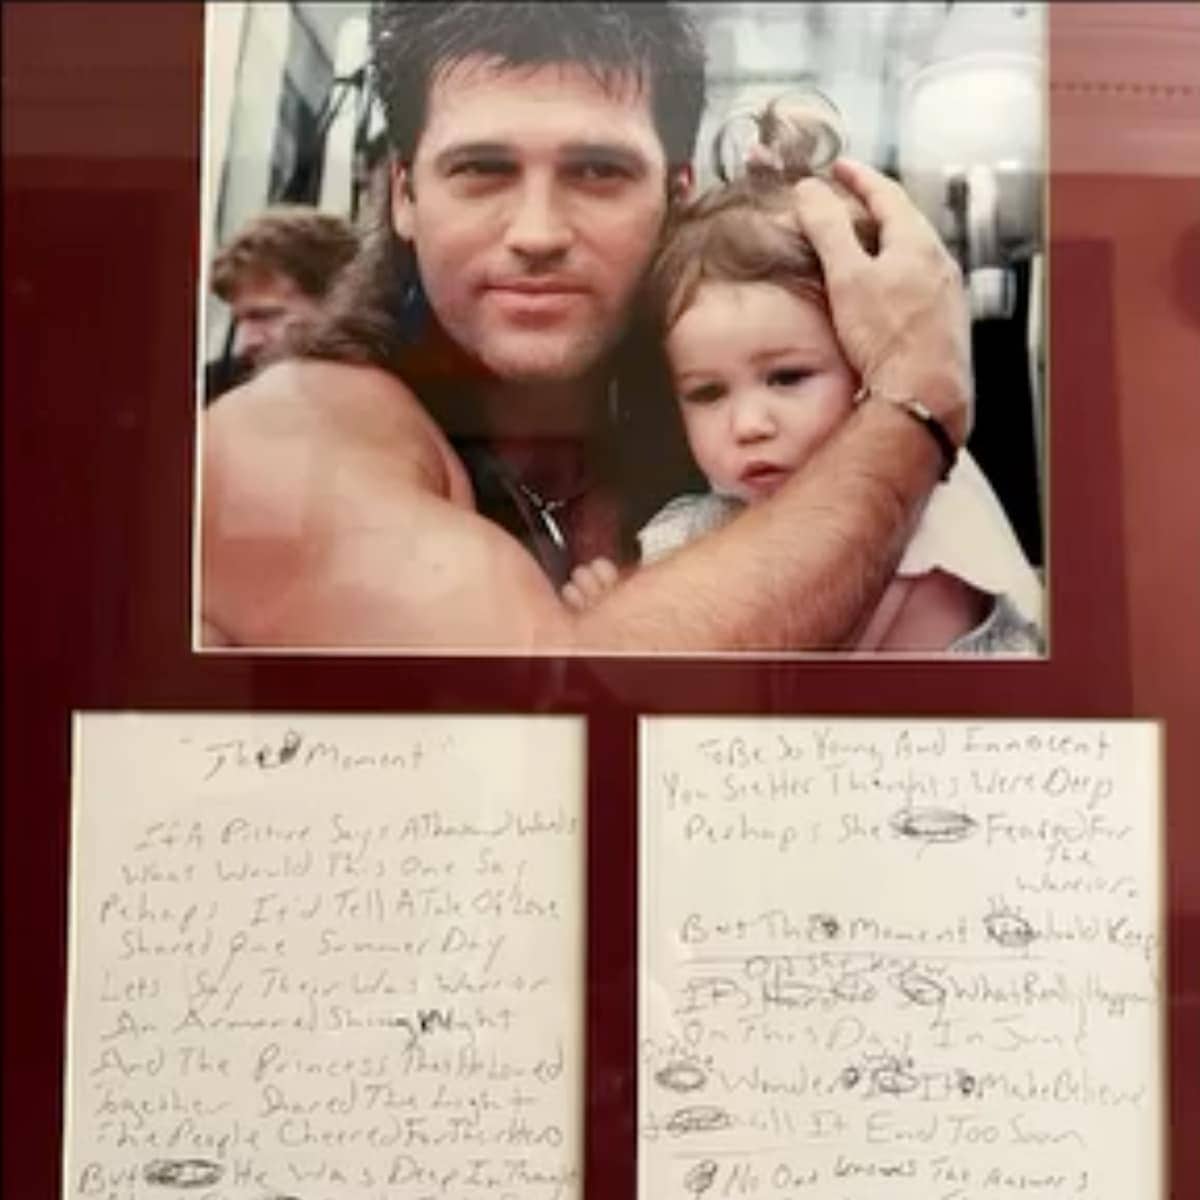 "The Moment"
If A Picture Says A Thousand Words
What Would This One Say
Pehaps It'd Tell A Tale Of Love
Shared One Summer Day
Lets Say Their Was Warrior
An Armored Shining Night
And The Princess That He Loved
Together Shared The Light
The People Cheered For Their Hero
But He Was Deep In Thought
To Be So Young And Innocent
You See Her Thoughts Were Deep
Perhaps She Feared For
The
Warrior.
But The Moment Would Keep
Oh She Knew
What Really Happen
On This Day In June
Wonder It Make Believe
Will It End Too Soon
No One Knows The Answers